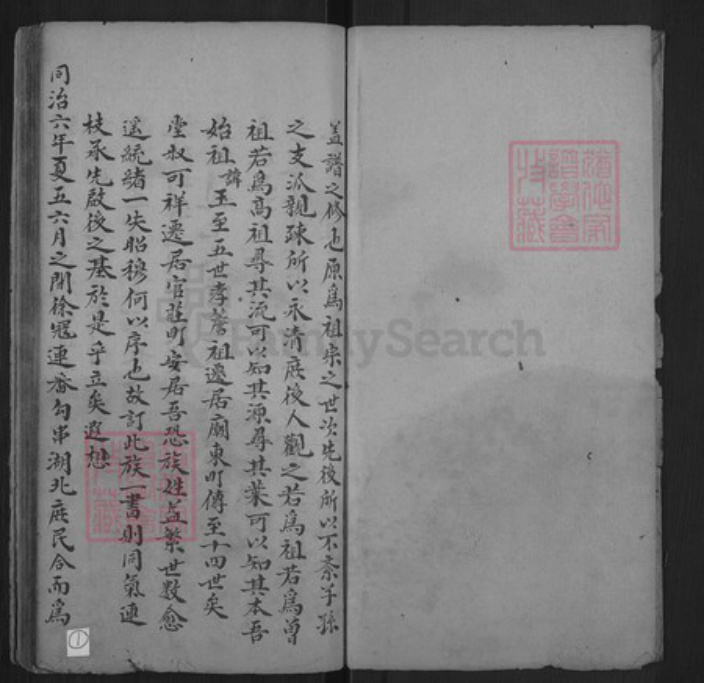 盖譜之修也原爲祖宗之世次先後所以不紊子孫
之支派親疎所以永清庶後人觀之若爲祖若爲曾
祖若爲高祖尋其流可以知其源尋其葉可以知其本吾
始祖諱玉至五世孝詹祖遷居廟東町傳至十四世矣
堂叔可祥遷居官莊町安居吾恐族姓益繁世数愈
遥統緒一失昭穆何以序也故訂此族一書則同氣連
枝承先啟後之基於是乎立矣遐想
同治六年夏五六月之間徐冠連番勾串湖北庶民合而爲
①
FamilySearch
譜學會
藏